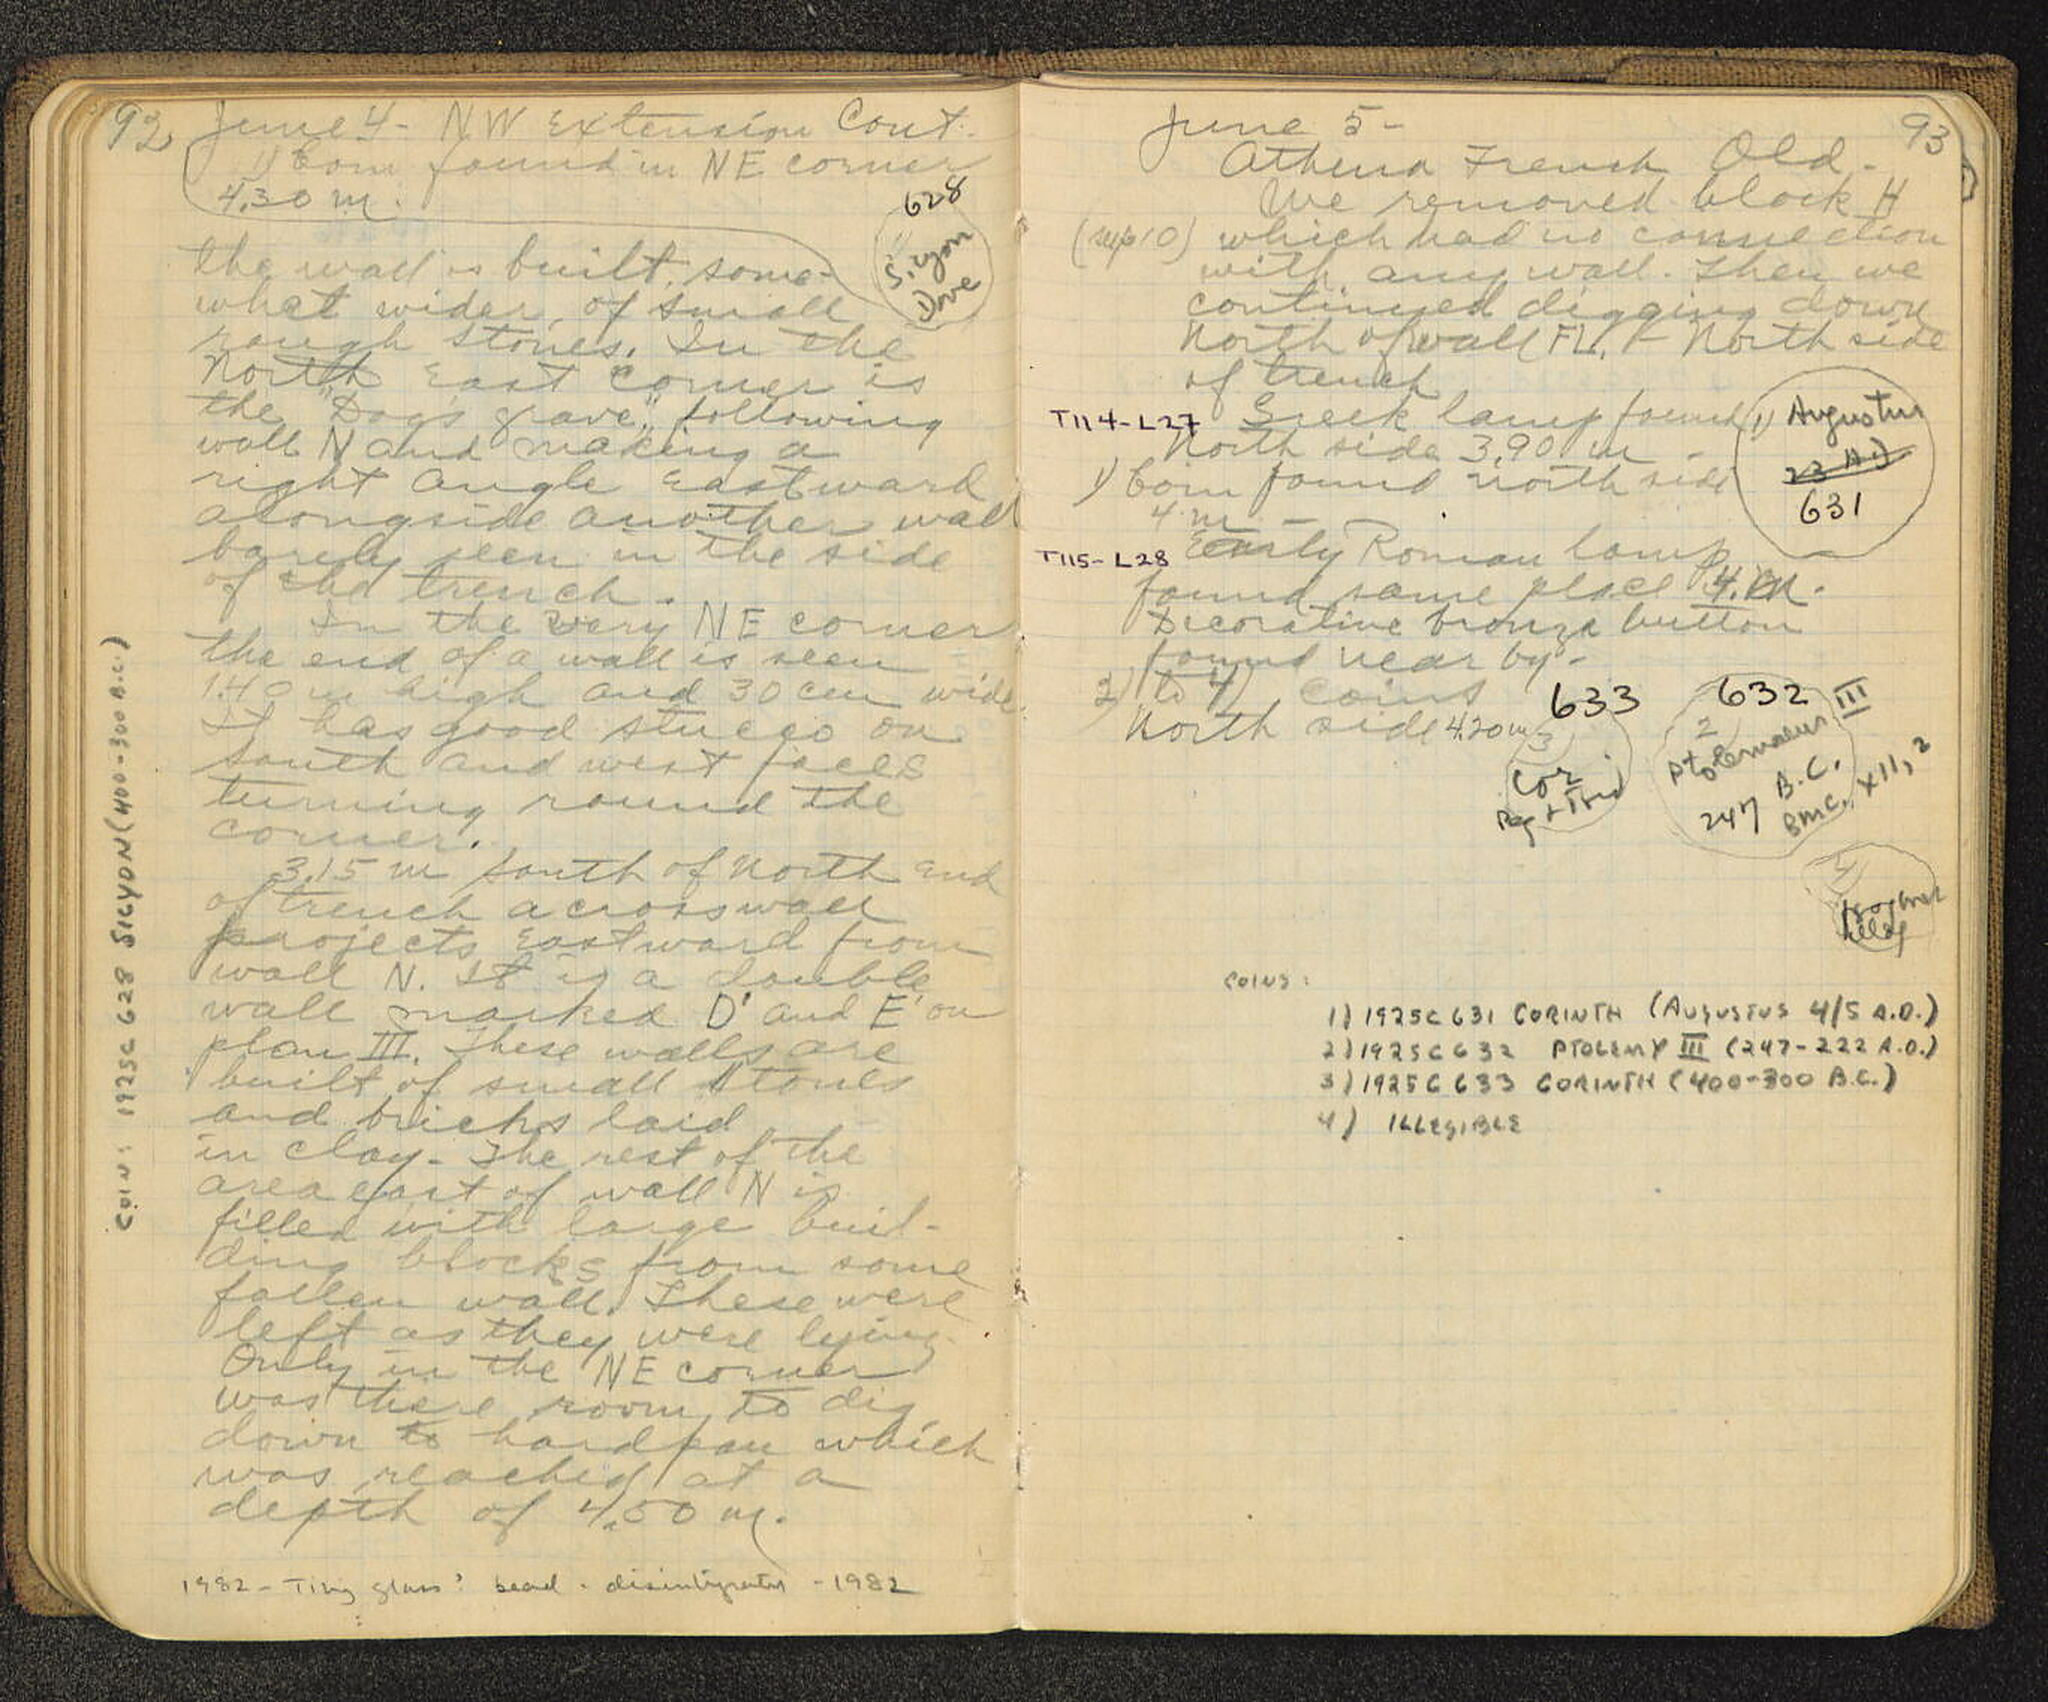 92 June 4 - NW Extension Cont.
1) Coin found in NE corner
4.30 m.
628
1)
Sicyon
Dove
the wall is built, some-
what wider, of small
rough stones. In the
North East corner is
the "Dog's grave", following
wall N and making a
right angle Eastward
alongside another wall
barely seen in the side
of the trench.
In the very NE corner
the end of a wall is seen
1.40 m high and 30 cm wide
It has good stucco on
south and west faces
turning round the
corner.
3.15 m south of North end
of trench a cross wall
projects Eastward from
wall N. It is a double
wall marked D' and E' on
plan III. These walls are
built of small stones
and bricks laid
in clay - The rest of the
area east of wall N is
filled with large buil-
ding blocks from some
fallen wall. These were
left as they were lying.
Only in the NE corner
was there room to dig
down to hardpan which
was reached at a
depth of 4.50 m.
1982 - Tiny glass? bead - disintegrates - 1982
COIN: 1925C 628 SICYON (400-300 B.C.)
93
June 5 -
Athena Trench Old -
We removed block H
(sup 10) which had no connection
with any wall. Then we
continued digging down
North of wall FL, - North side
of trench
T114-L27 Greek lamp found
North side 3.90 m -
1) Coin found north side
4 m -
1) Augustus
23 A.D
631
T115-L28 Early Roman lamp
found same place 4. m.
Decorative bronze button
found near by -
2) to 4) Coins
North side 4.20 m
633
3
Cor
Peg + Trid
632
2
Ptolemaeus III
247 B.C.
BMC. XII, 2
4
illeg
COINS:
1) 1925C 631 CORINTH (AUGUSTUS 4/5 A.D.)
2) 1925C 632 PTOLEMY III (247-222 A.D.)
3) 1925C 633 CORINTH (400-300 B.C.)
4) ILLEGIBLE